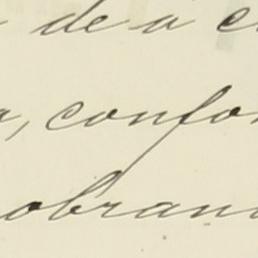 de a
, confor
obran